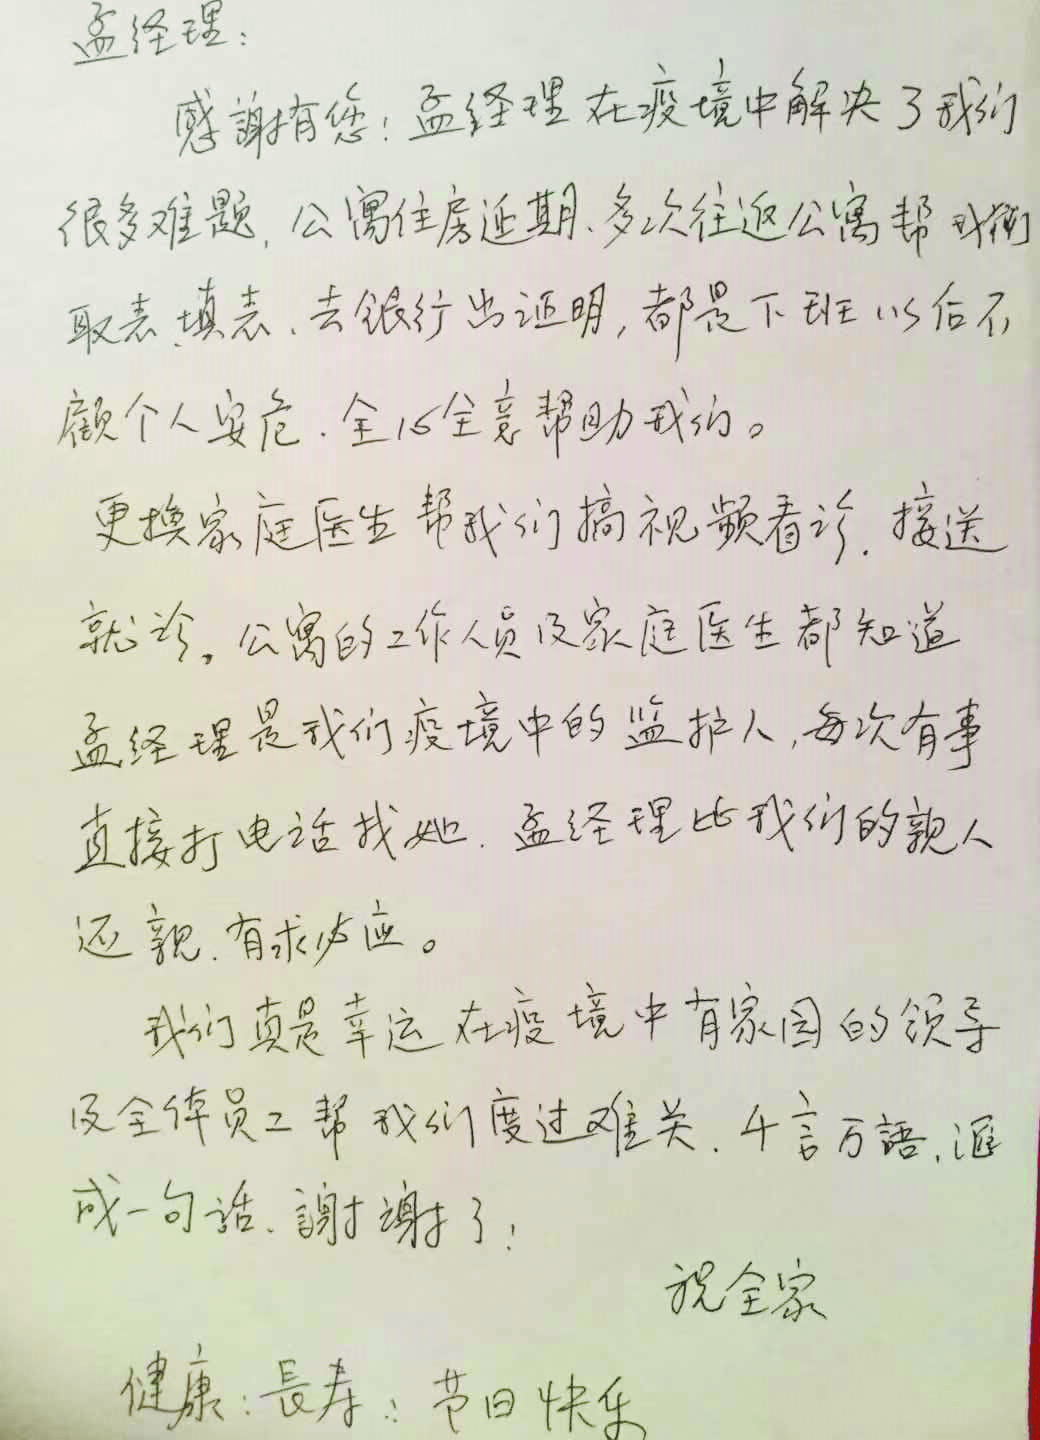 孟经理：
感謝有您！孟经理在疫境中解决了我们
很多难题，公寓住房延期、多次往返公寓帮我们
取表、填表、去银行出证明，都是下班以后不
顾个人安危、全心全意帮助我们。
更换家庭医生帮我们搞视频看诊、接送
就诊。公寓的工作人员及家庭医生都知道
孟经理是我们疫境中的监护人，每次有事
直接打电话找她、孟经理比我们的親人
还親、有求必应。
我们真是幸运在疫境中有家园的领导
及全体员工帮我们度过难关、千言万語，滙
成一句话、謝謝了！
祝全家
健康！長寿！！节日快乐